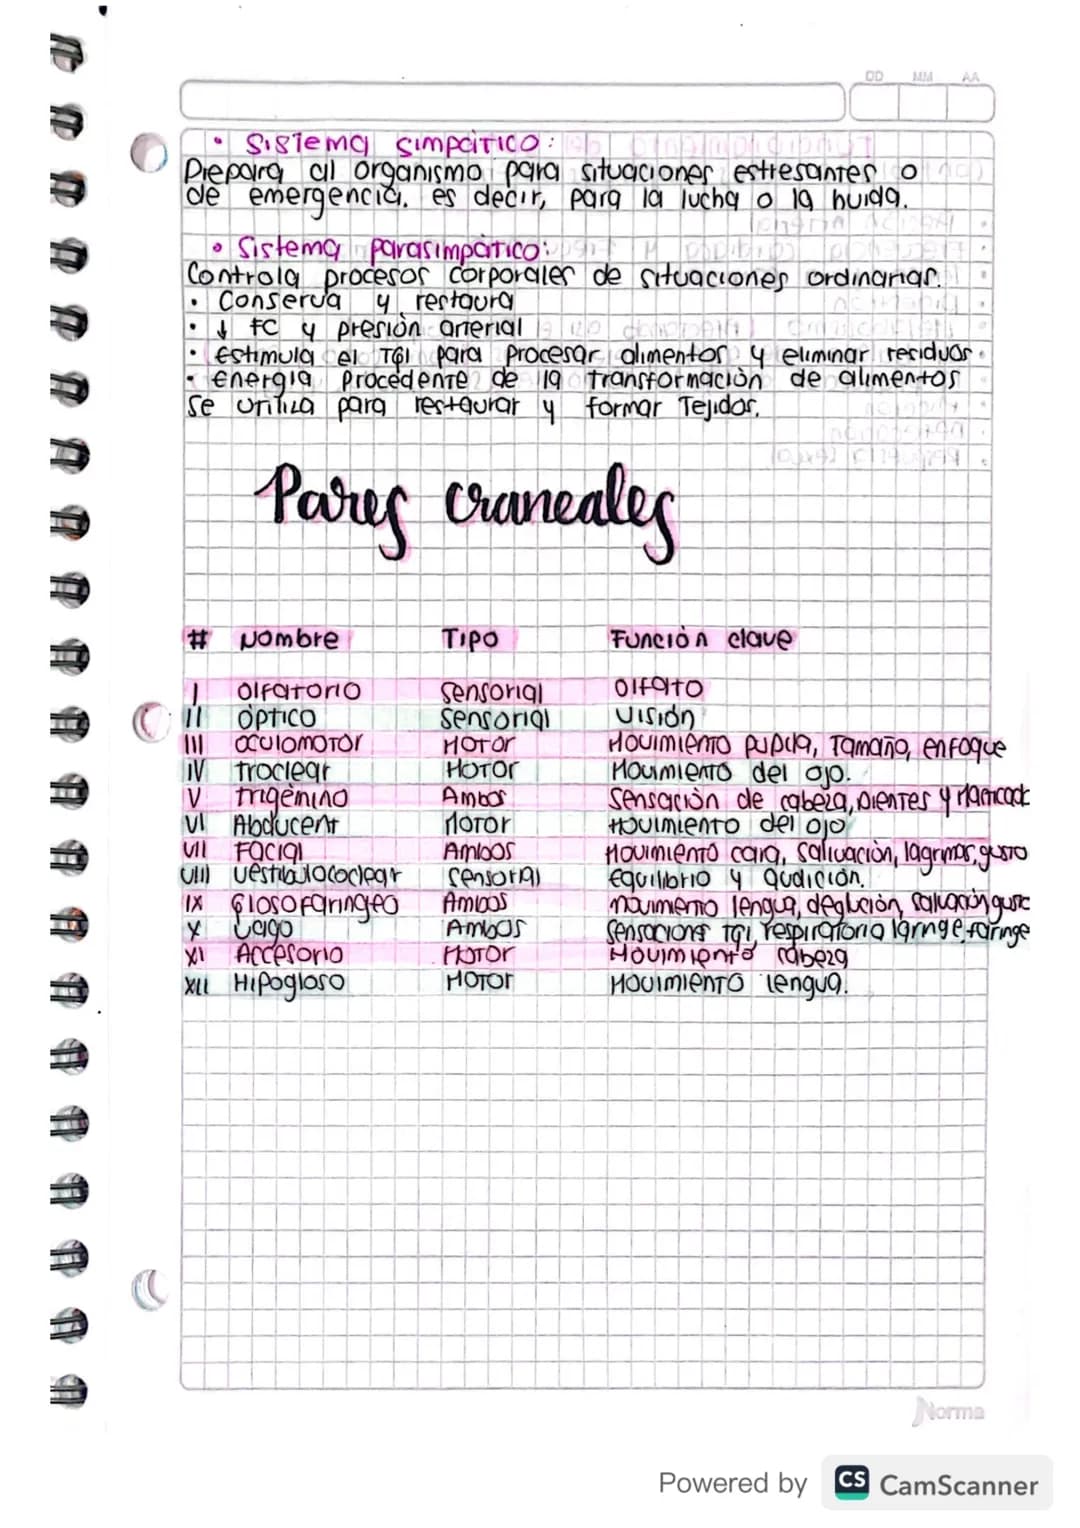 DD MM AA
• Sistema simpático:
Prepara al organismo para situaciones estresantes o
de emergencia. es decir, para la lucha o la huida.
• Sistema parasimpático:
Controla procesos corporales de situaciones ordinarias.
• Conserva y restaura
• ↓ FC y presión arterial
• Estimula el TGI para procesar alimentos y eliminar residuos
• energia procedente de la transformación de alimentos
se utiliza para restaurar y formar Tejidos.
Pares craneales
# Nombre Tipo Función clave
I Olfatorio Sensorial Olfato
II óptico Sensorial Visión
III Oculomotor Motor Movimiento pupila, Tamaño, enfoque
IV Troclear Motor Movimiento del ojo.
V Trigémino Ambos Sensación de cabeza, Dientes y
VI Abducent Motor Movimiento del ojo
VII Facial Ambos Movimiento cara, salivación, lagrimas, gusto
VIII Sensorial Equilibrio y audición.
IX Glosofaringeo Ambos movimiento lengua, deglución, salivación gusto
X Vago Ambos TGI, respiratoria laringe, faringe
XI Accesorio Motor Movimiento cabeza
XII Hipogloso Motor Movimiento lengua.
Norma
Powered by CS CamScanner